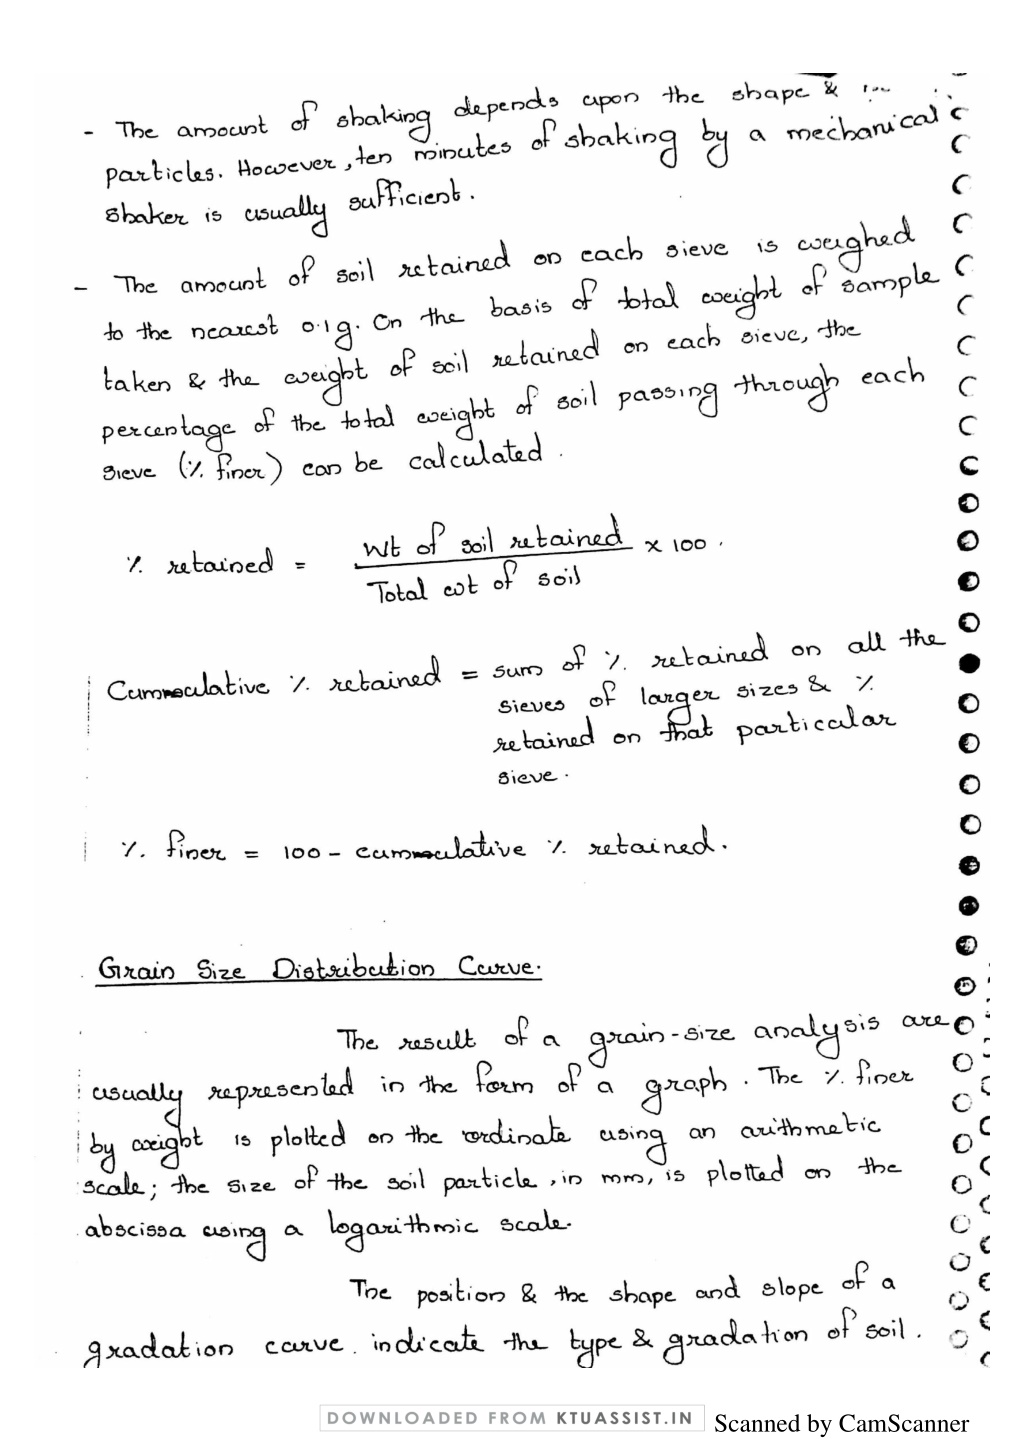 - The amount of shaking depends upon the shape &
particles. However, ten minutes of shaking by a mechanical
shaker is usually sufficient.
- The amount of soil retained on each sieve is weighed
to the nearest 0.1g. On the basis of total weight of sample
taken & the weight of soil retained on each sieve, the
percentage of the total weight of soil passing through each
sieve (% finer) can be calculated.
% retained = Wt of soil retained / Total wt of soil x 100.
Cummulative % retained = sum of % retained on all the
sieves of larger sizes & %
retained on that particular
sieve.
% finer = 100 - cummulative % retained.
Grain Size Distribution Curve.
The result of a grain-size analysis are
usually represented in the form of a graph. The % finer
by weight is plotted on the ordinate using an arithmetic
scale; the size of the soil particle, in mm, is plotted on the
abscissa using a logarithmic scale.
The position & the shape and slope of a
gradation curve indicate the type & gradation of soil.
DOWNLOADED FROM KTUASSIST.IN
Scanned by CamScanner